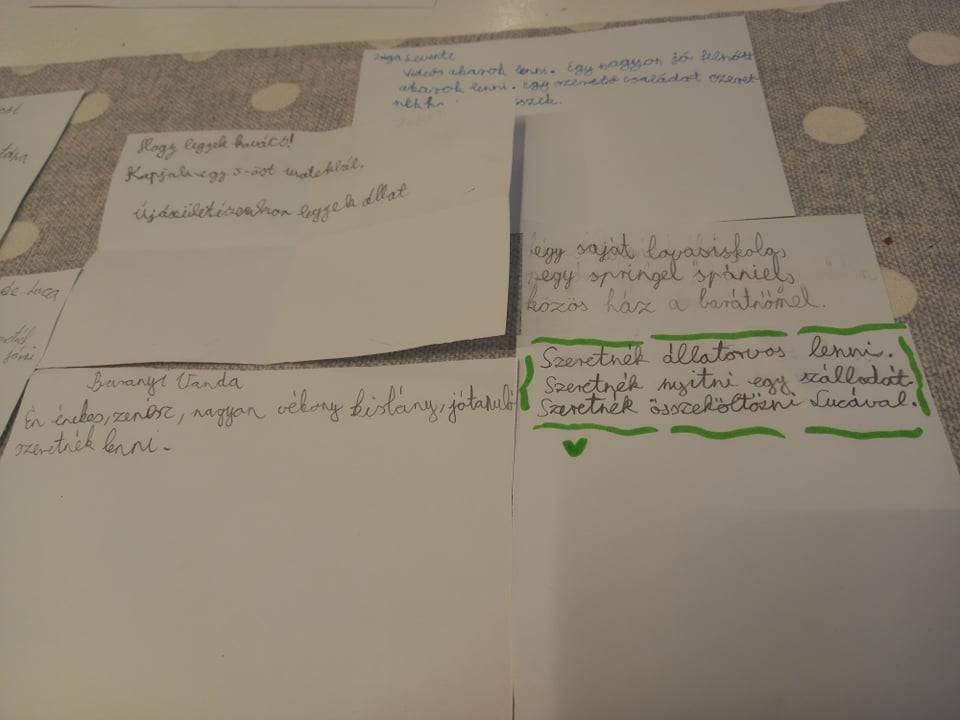 Videós akarok lenni. Egy nagyon jó felnőtt
akarok lenni. Egy szerető családot szeret
Hogy legyek kovács!
Kapjak egy 5-öst
legyek állat
egy saját lovasiskola,
egy springel spániel,
közös ház a barátnőmel.
de Luca
Szeretnék állatorvos lenni.
Szeretnék nyitni egy szállodát.
Szeretnék összeköltözni Lucával.
Baranyi Vanda
Én énekes, zenész, nagyon vékony kislány, jótanuló
szeretnék lenni.